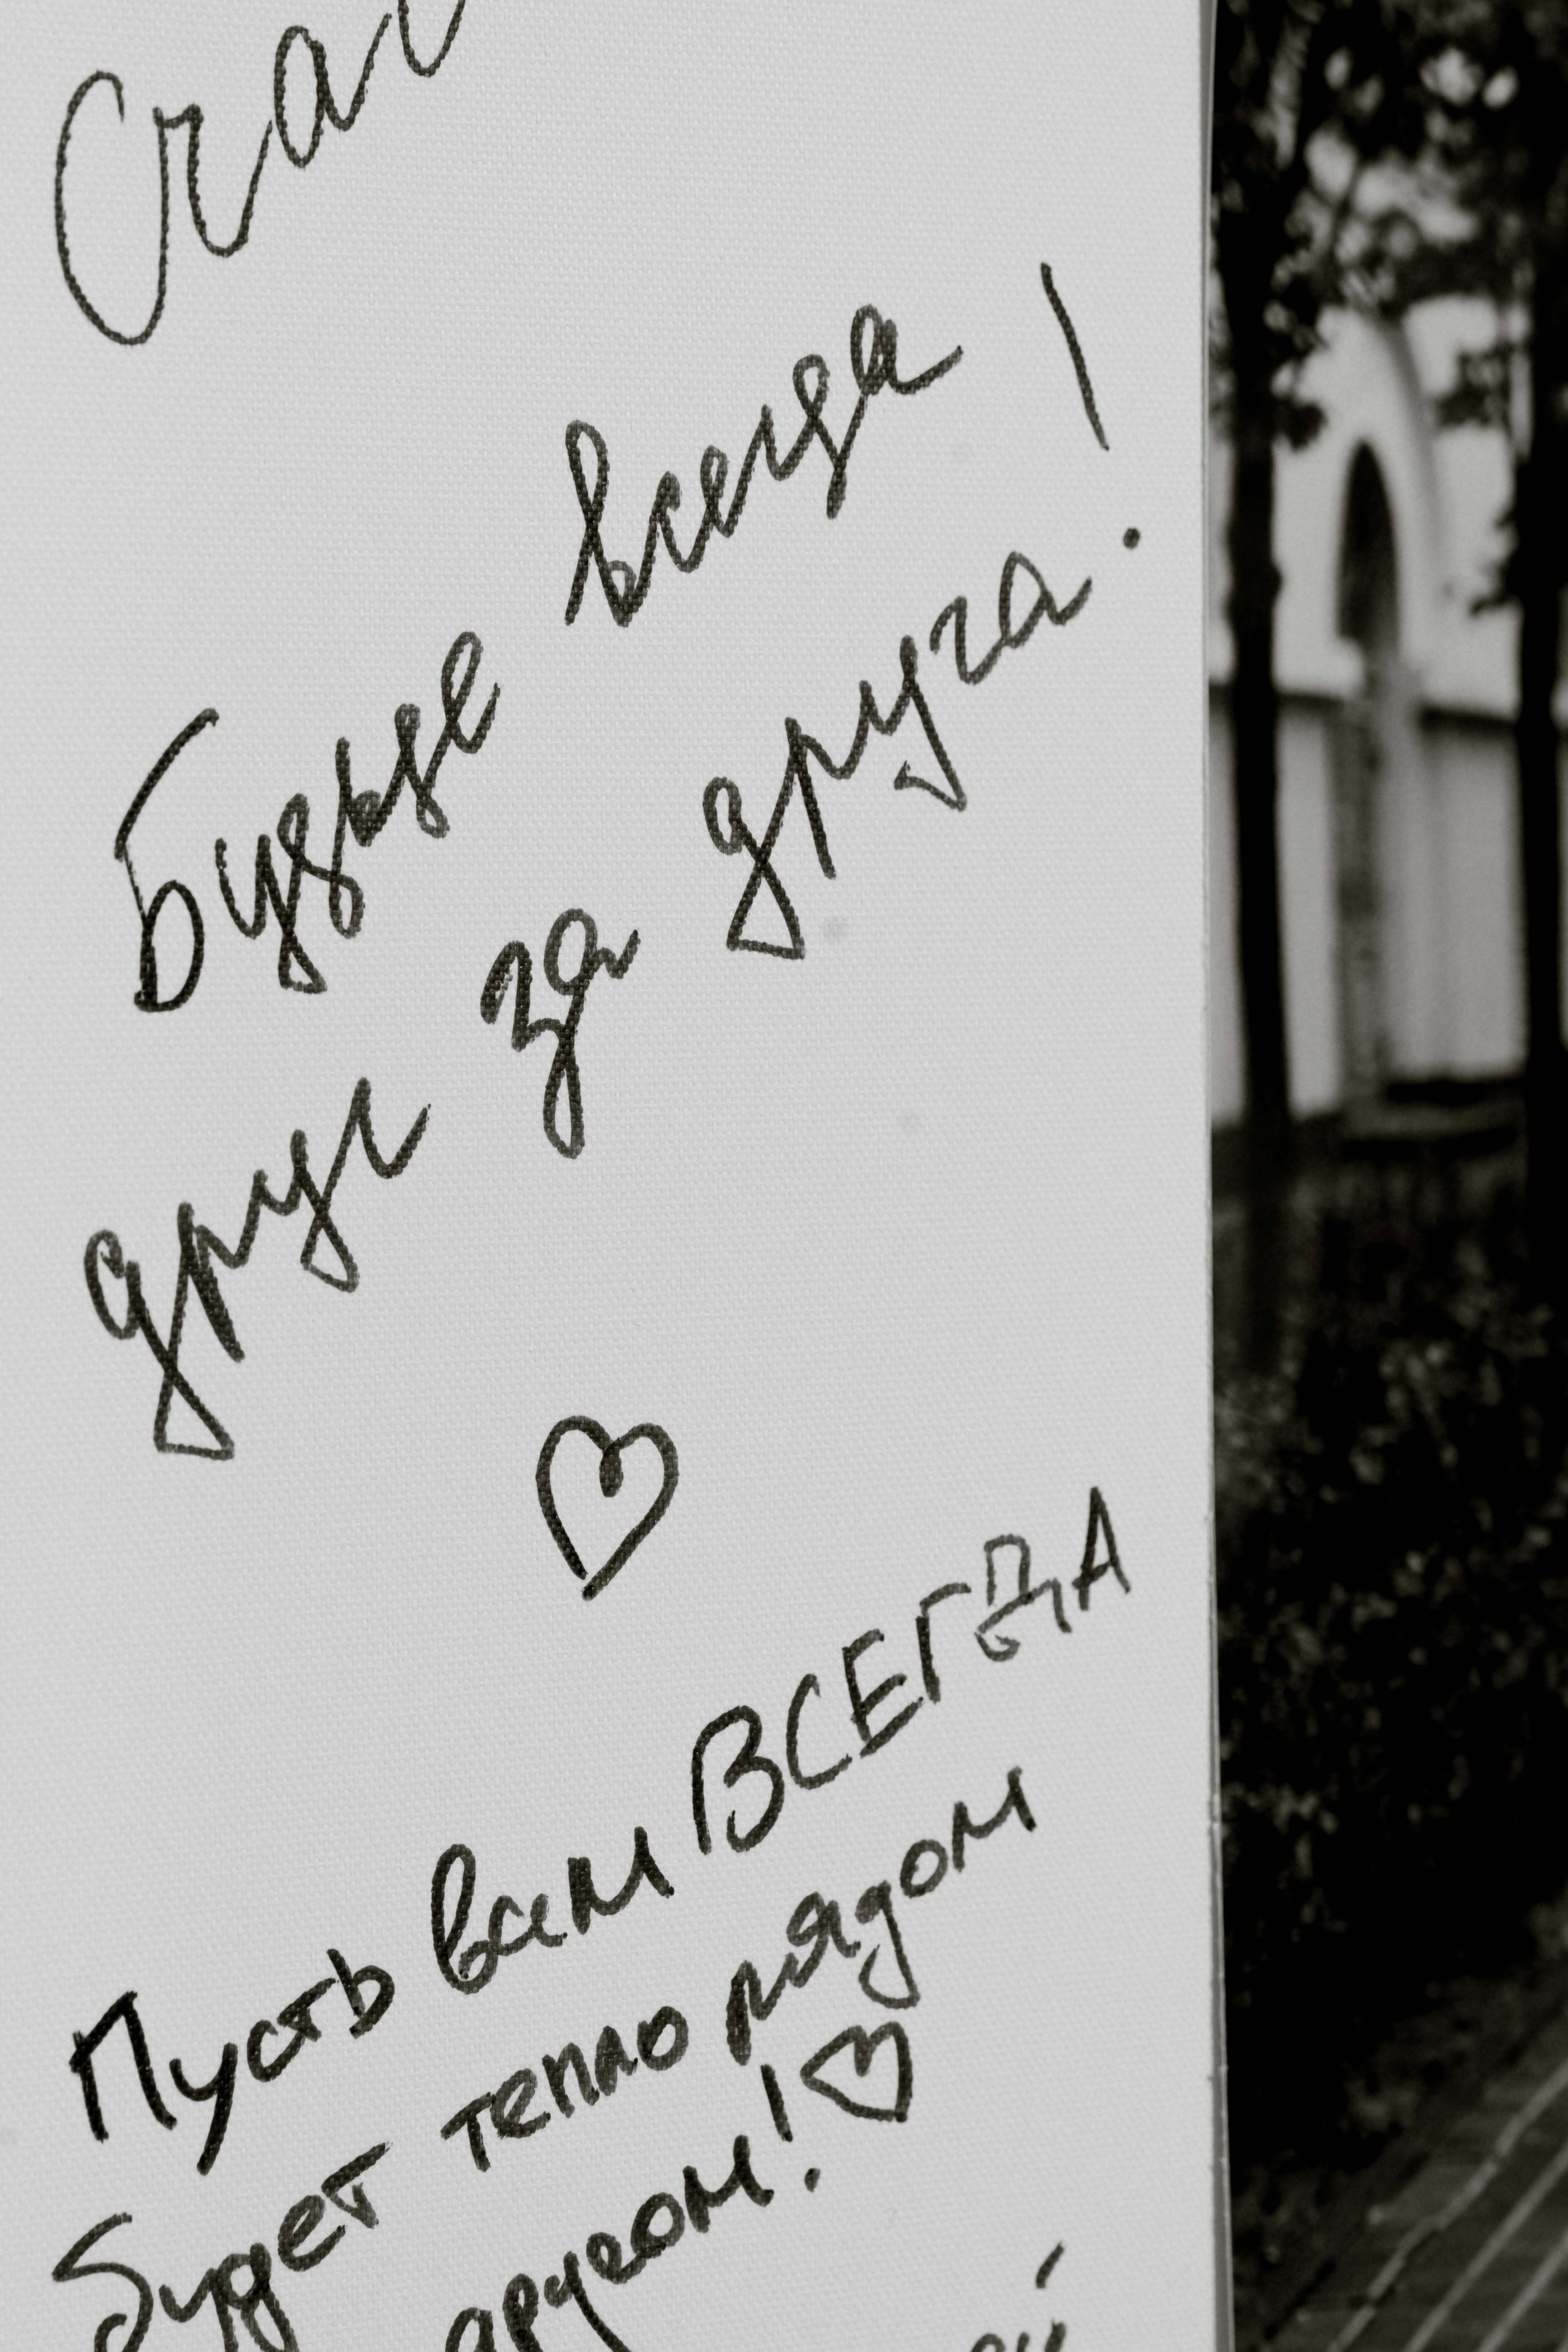 Будьде всегда
друг за друга!
♡
Пусть вам ВСЕГДА
будет тепло рядом
другом! ♡